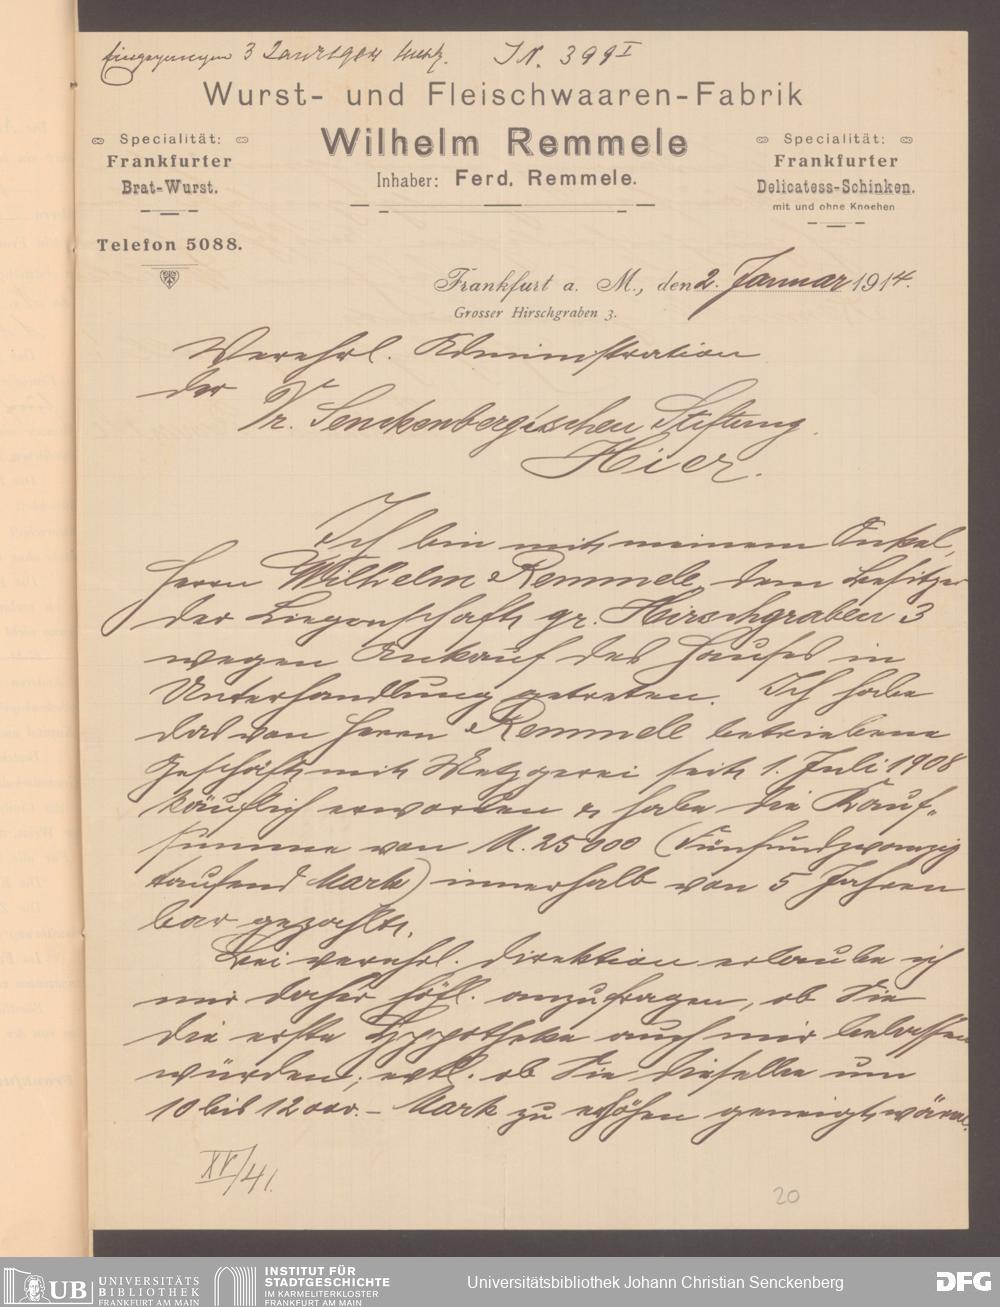 Eingegangen 3 Januar 1914
J N. 399 I
Wurst- und Fleischwaaren-Fabrik
Wilhelm Remmele
Inhaber: Ferd. Remmele.
Specialität:
Frankfurter
Brat-Wurst.
Specialität:
Frankfurter
Delicatess-Schinken.
mit und ohne Knochen
Telefon 5088.
Frankfurt a. M., den 2. Januar 1914.
Grosser Hirschgraben 3.
Verehrl. Administration
der
Dr. Senckenbergischen Stiftung.
Hier.
Ich bin mit meinem Onkel,
Herrn Wilhelm Remmele, dem Besitzer
der Liegenschaft gr. Hirschgraben 3
wegen Ankauf des Hauses in
Unterhandlung getreten. Ich habe
das von Herrn Remmele betriebene
Geschäft mit Metzgerei seit 1. Juli 1908
käuflich erworben & habe die Kauf-
summe von M. 25 000 (Fünfundzwanzig
tausend Mark) innerhalb von 5 Jahren
bar gezahlt.
Bei verehrl. Direktion erlaube ich
mir daher höfl. anzufragen, ob Sie
die erste Hypotheke auch mir belassen
würden; evtl. ob Sie dieselbe um
10 bis 12 000.- Mark zu erhöhen geneigt wären.
XV/41.
20
UB UNIVERSITÄTS
BIBLIOTHEK
FRANKFURT AM MAIN
INSTITUT FÜR
STADTGESCHICHTE
IM KARMELITERKLOSTER
FRANKFURT AM MAIN
Universitätsbibliothek Johann Christian Senckenberg
DFG